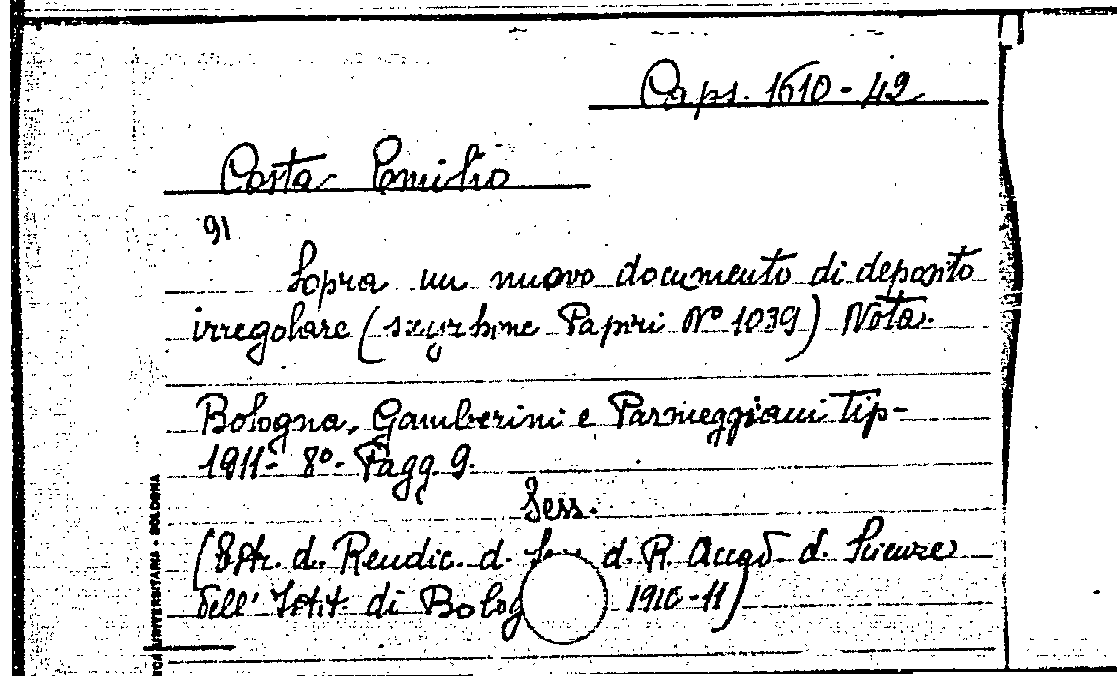 Caps. 1610-42
Costa Emilio
91
Sopra un nuovo documento di deposito
irregolare ( Papiri Nº 1039) Nota.
Bologna, Gamberini e Parmeggiani Tip-
1911- 8º- Pagg 9.
Sess.
(Estr. d. Rendic. d. d. R. Accad. d. Scienze
dell' Istit. di Bolog 1910-11)
UNIVERSITARIA - BOLOGNA